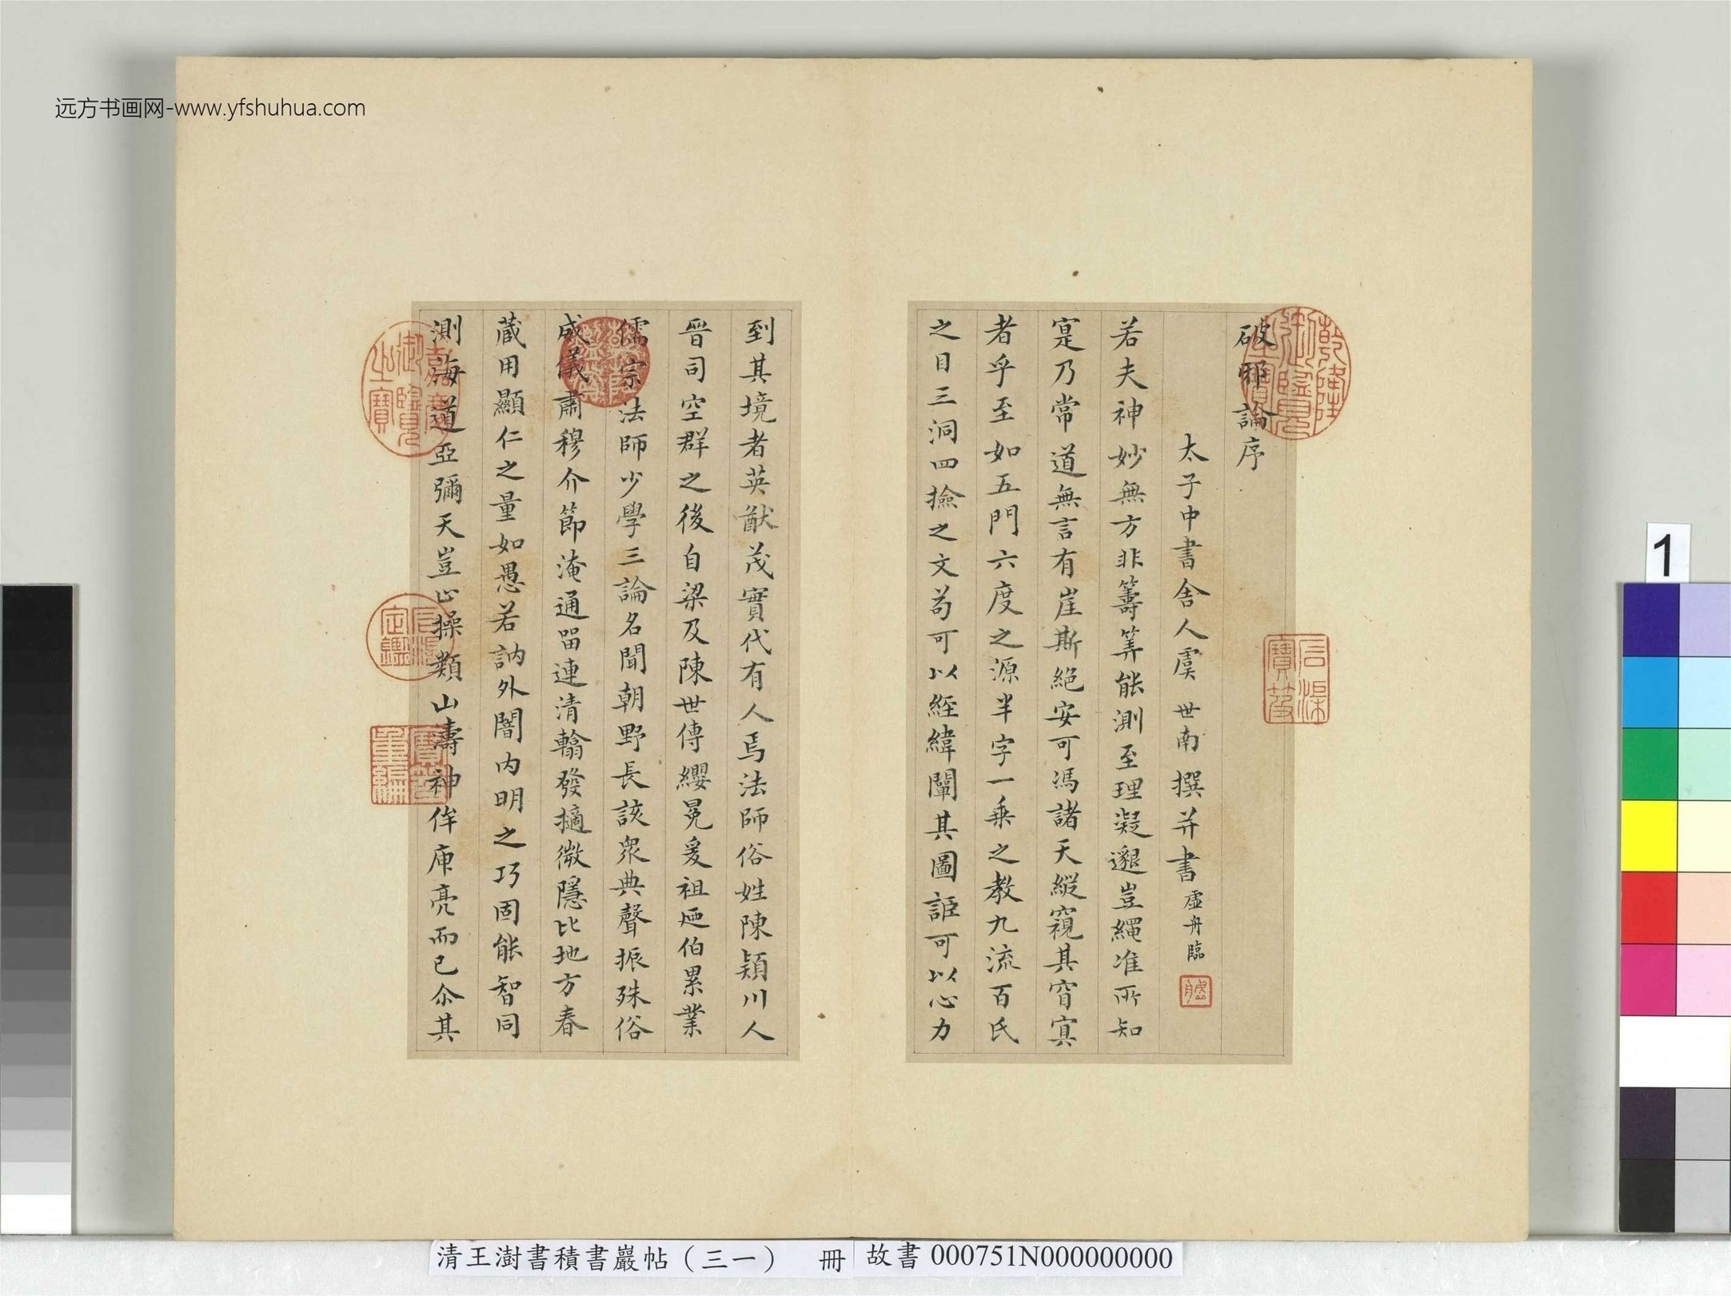 远方书画网-www.yfshuhua.com
破邪論序
太子中書舍人虞世南撰并書虛舟臨
若夫神妙無方非籌筭能測至理凝邈豈繩准所知
寔乃常道無言有崖斯絕安可馮諸天縱窺其窅冥
者乎至如五門六度之源半字一乘之教九流百氏
之目三洞四撿之文苟可以經緯闡其圖詎可以心力
到其境者英猷茂實代有人焉法師俗姓陳潁川人
晉司空群之後自梁及陳世傳纓冕爰祖及伯累業
儒宗法師少學三論名聞朝野長該眾典聲振殊俗
威儀肅穆介節淹通留連清翰發擿微隱比地方春
藏用顯仁之量如愚若訥外闇內明之巧固能智同
測海道亞彌天豈止操類山濤神侔庾亮而已尒其
乾隆御覽之寶
石渠寶笈
嘉慶御覽之寶
石渠定鑑
寶笈重編
1
清王澍書積書巖帖（三一） 冊 故書 000751N000000000